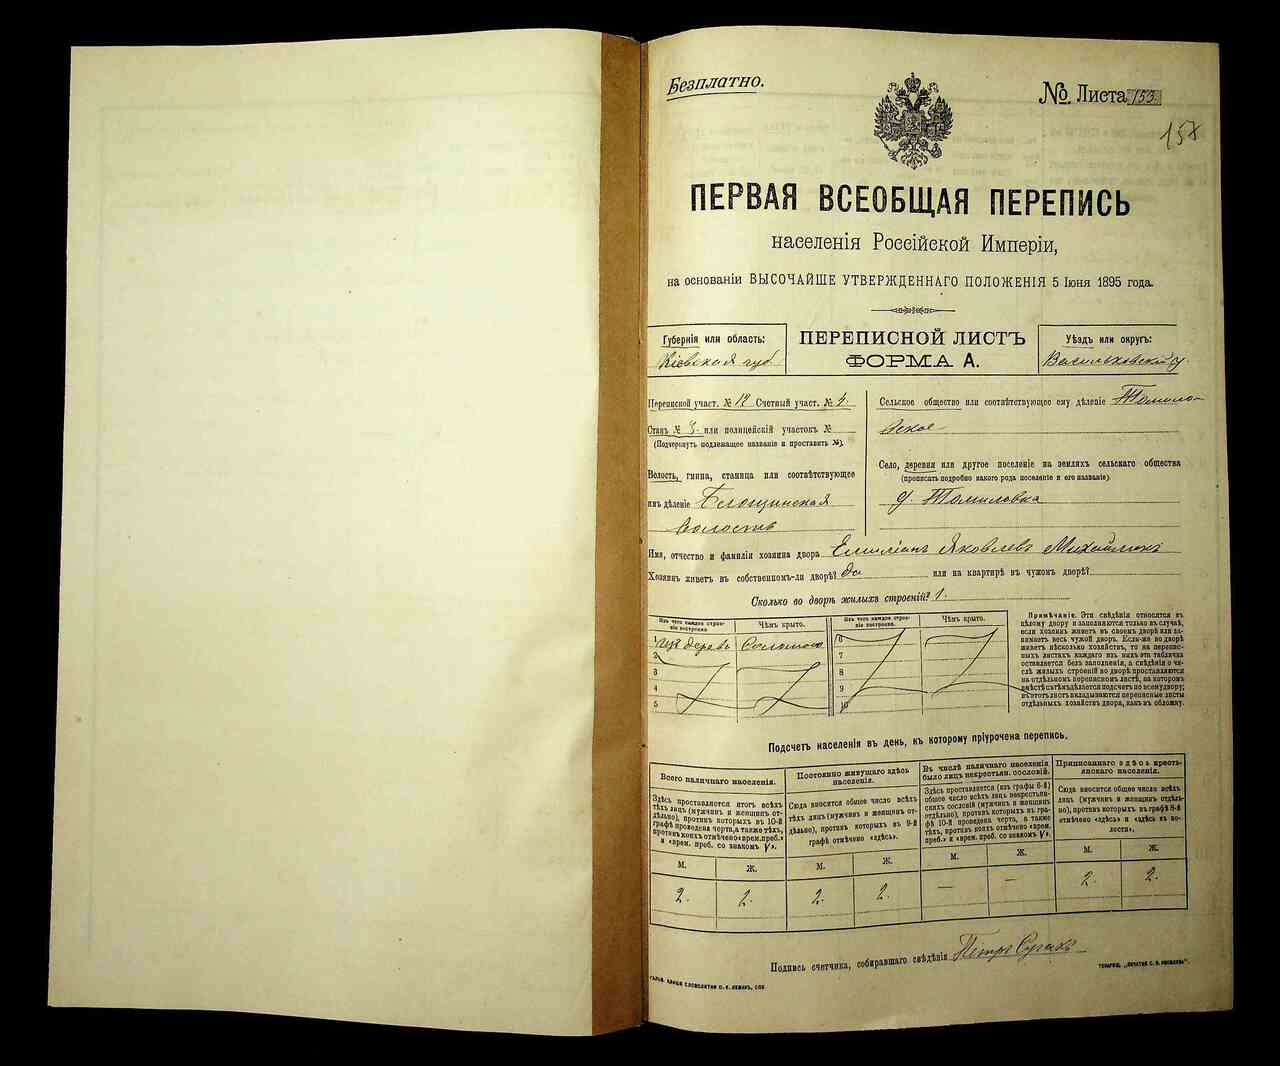 Безплатно.
№ Листа 153.
ПЕРВАЯ ВСЕОБЩАЯ ПЕРЕПИСЬ
населенія Россійской Имперіи,
на основаніи ВЫСОЧАЙШЕ УТВЕРЖДЕННАГО ПОЛОЖЕНІЯ 5 Іюня 1895 года.
Губернія или область:
Кіевская губ.
ПЕРЕПИСНОЙ ЛИСТЪ
ФОРМА А.
Уѣздъ или округъ:
Васильковскій у.
Переписной участ. № 12 Счетный участ. № 4.
Станъ № 3. или полицейскій участокъ №
(Подчеркнуть подлежащее названіе и проставить №).
Волость, гмина, станица или соотвѣтствующее
имъ дѣленіе
волость
Сельское общество или соотвѣтствующее ему дѣленіе Томилов-
ское
Село, деревня или другое поселеніе на земляхъ сельскаго общества
(прописать подробно какого рода поселеніе и его названіе).
д. Томиловка
Имя, отчество и фамилія хозяина двора Емиліанъ Яковлевъ Михайлюкъ
Хозяинъ живетъ въ собственномъ-ли дворѣ? да или на квартирѣ въ чужомъ дворѣ?
Сколько во дворѣ жилыхъ строеній? 1.
Изъ чего каждое строеніе построено.
Чѣмъ крыто.
Изъ чего каждое строеніе построено.
Чѣмъ крыто.
1 дерева Соломою 6
2 7
3 8
4 9
5 10
Примѣчаніе. Эти свѣдѣнія относятся къ
цѣлому двору и заполняются только въ случаѣ,
если хозяинъ живетъ въ своемъ дворѣ или занимаетъ
весь чужой дворъ. Если-же во дворѣ
живетъ нѣсколько хозяйствъ, то на переписныхъ
листахъ каждаго изъ нихъ эта табличка
оставляется безъ заполненія, а свѣдѣнія о числѣ
жилыхъ строеній во дворѣ проставляются
на отдѣльномъ переписномъ листѣ, на которомъ
вмѣстѣ съ тѣмъ дѣлается подсчетъ по всему двору;
въ этотъ листъ вкладываются переписные листы
отдѣльныхъ хозяйствъ двора, какъ въ обложку.
Подсчетъ населенія въ день, къ которому пріурочена перепись.
Всего наличнаго населенія.
Здѣсь проставляется итогъ всѣхъ
тѣхъ лицъ (мужчинъ и женщинъ отдѣльно),
противъ которыхъ въ 10-й
графѣ проведена черта, а также тѣхъ,
противъ коихъ отмѣчено «врем. преб.»
и «врем. преб. со знакомъ V».
Постоянно живущаго здѣсь
населенія.
Сюда вносится общее число всѣхъ
тѣхъ лицъ (мужчинъ и женщинъ отдѣльно),
противъ которыхъ въ 9-й
графѣ отмѣчено «здѣсь».
Въ числѣ наличнаго населенія
было лицъ некрестьян. сословій.
Здѣсь проставляется (изъ графы 6-й)
общее число всѣхъ лицъ некрестьянскихъ
сословій (мужчинъ и женщинъ
отдѣльно), противъ которыхъ въ графѣ
10-й проведена черта, а также
тѣхъ, противъ коихъ отмѣчено «врем.
преб.» и «врем. преб. со знакомъ V».
Приписаннаго здѣсь крестьянскаго
населенія.
Сюда вносится общее число всѣхъ
лицъ (мужчинъ и женщинъ отдѣльно),
противъ которыхъ въ графѣ 8-й
отмѣчено «здѣсь» и «здѣсь въ волости».
М. Ж. М. Ж. М. Ж. М. Ж.
2. 2. 2. 2. — — 2. 2.
Подпись счетчика, собиравшаго свѣдѣнія Петръ